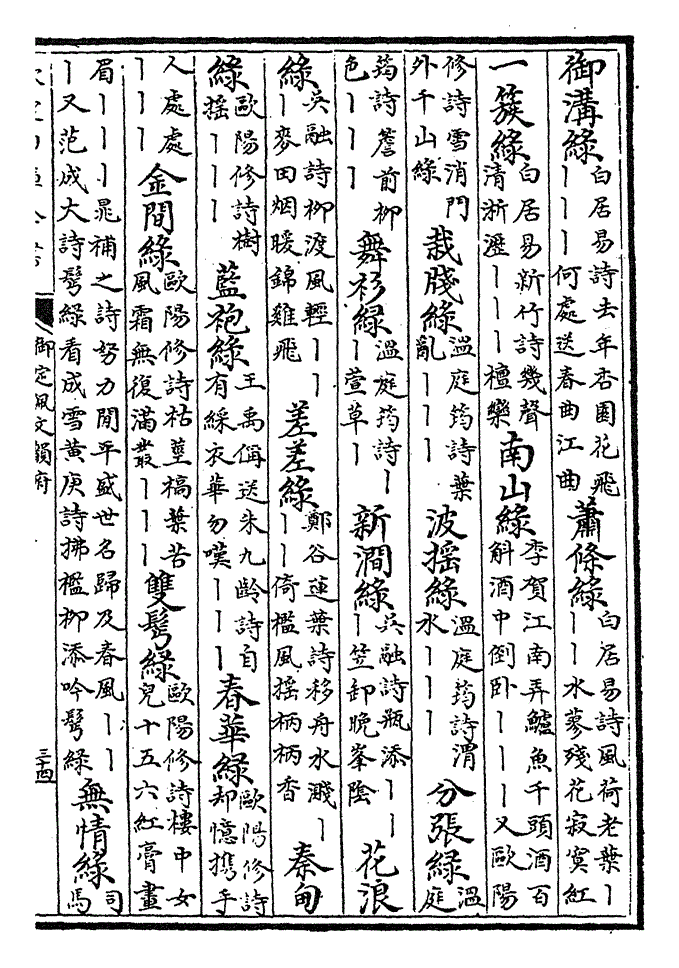 御溝綠白居易詩去年杏園花飛丨丨丨何處送春曲江曲蕭條綠白居易詩風荷老葉丨丨丨水蓼殘花寂寞紅
一簇綠白居易新竹詩幾聲清淅瀝丨丨丨檀欒南山綠李賀江南弄鱸魚千頭酒百斛酒中倒卧丨丨丨又歐陽
修詩雪消門外千山綠栽牋綠溫庭筠詩葉亂丨丨丨波揺綠溫庭筠詩渭水丨丨丨分張綠溫庭
筠詩簷前柳色丨丨丨舞衫綠溫庭筠詩丨丨萱草丨新澗綠吳融詩瓶添丨丨丨笠卸晚峯陰花浪
綠吳融詩柳渡風輕丨丨丨麥田烟暖錦雞飛差差綠鄭谷蓮葉詩移舟水濺丨丨丨倚檻風揺柄柄香秦甸
綠歐陽修詩樹揺丨丨丨藍袍綠王禹偁送朱九齡詩自有綵衣華勿嘆丨丨丨春華綠歐陽修詩却憶携手
人處處丨丨丨金間綠歐陽修詩枯莖槁葉苦風霜無復滿叢丨丨丨雙鬢綠歐陽修詩樓中女兒十五六紅膏畫
眉丨丨丨晁補之詩努力閒平盛世名歸及春風丨丨丨又范成大詩鬢綠看成雪黄庚詩拂檻柳添吟鬢綠無情綠司馬
御定佩文韻府
三十四